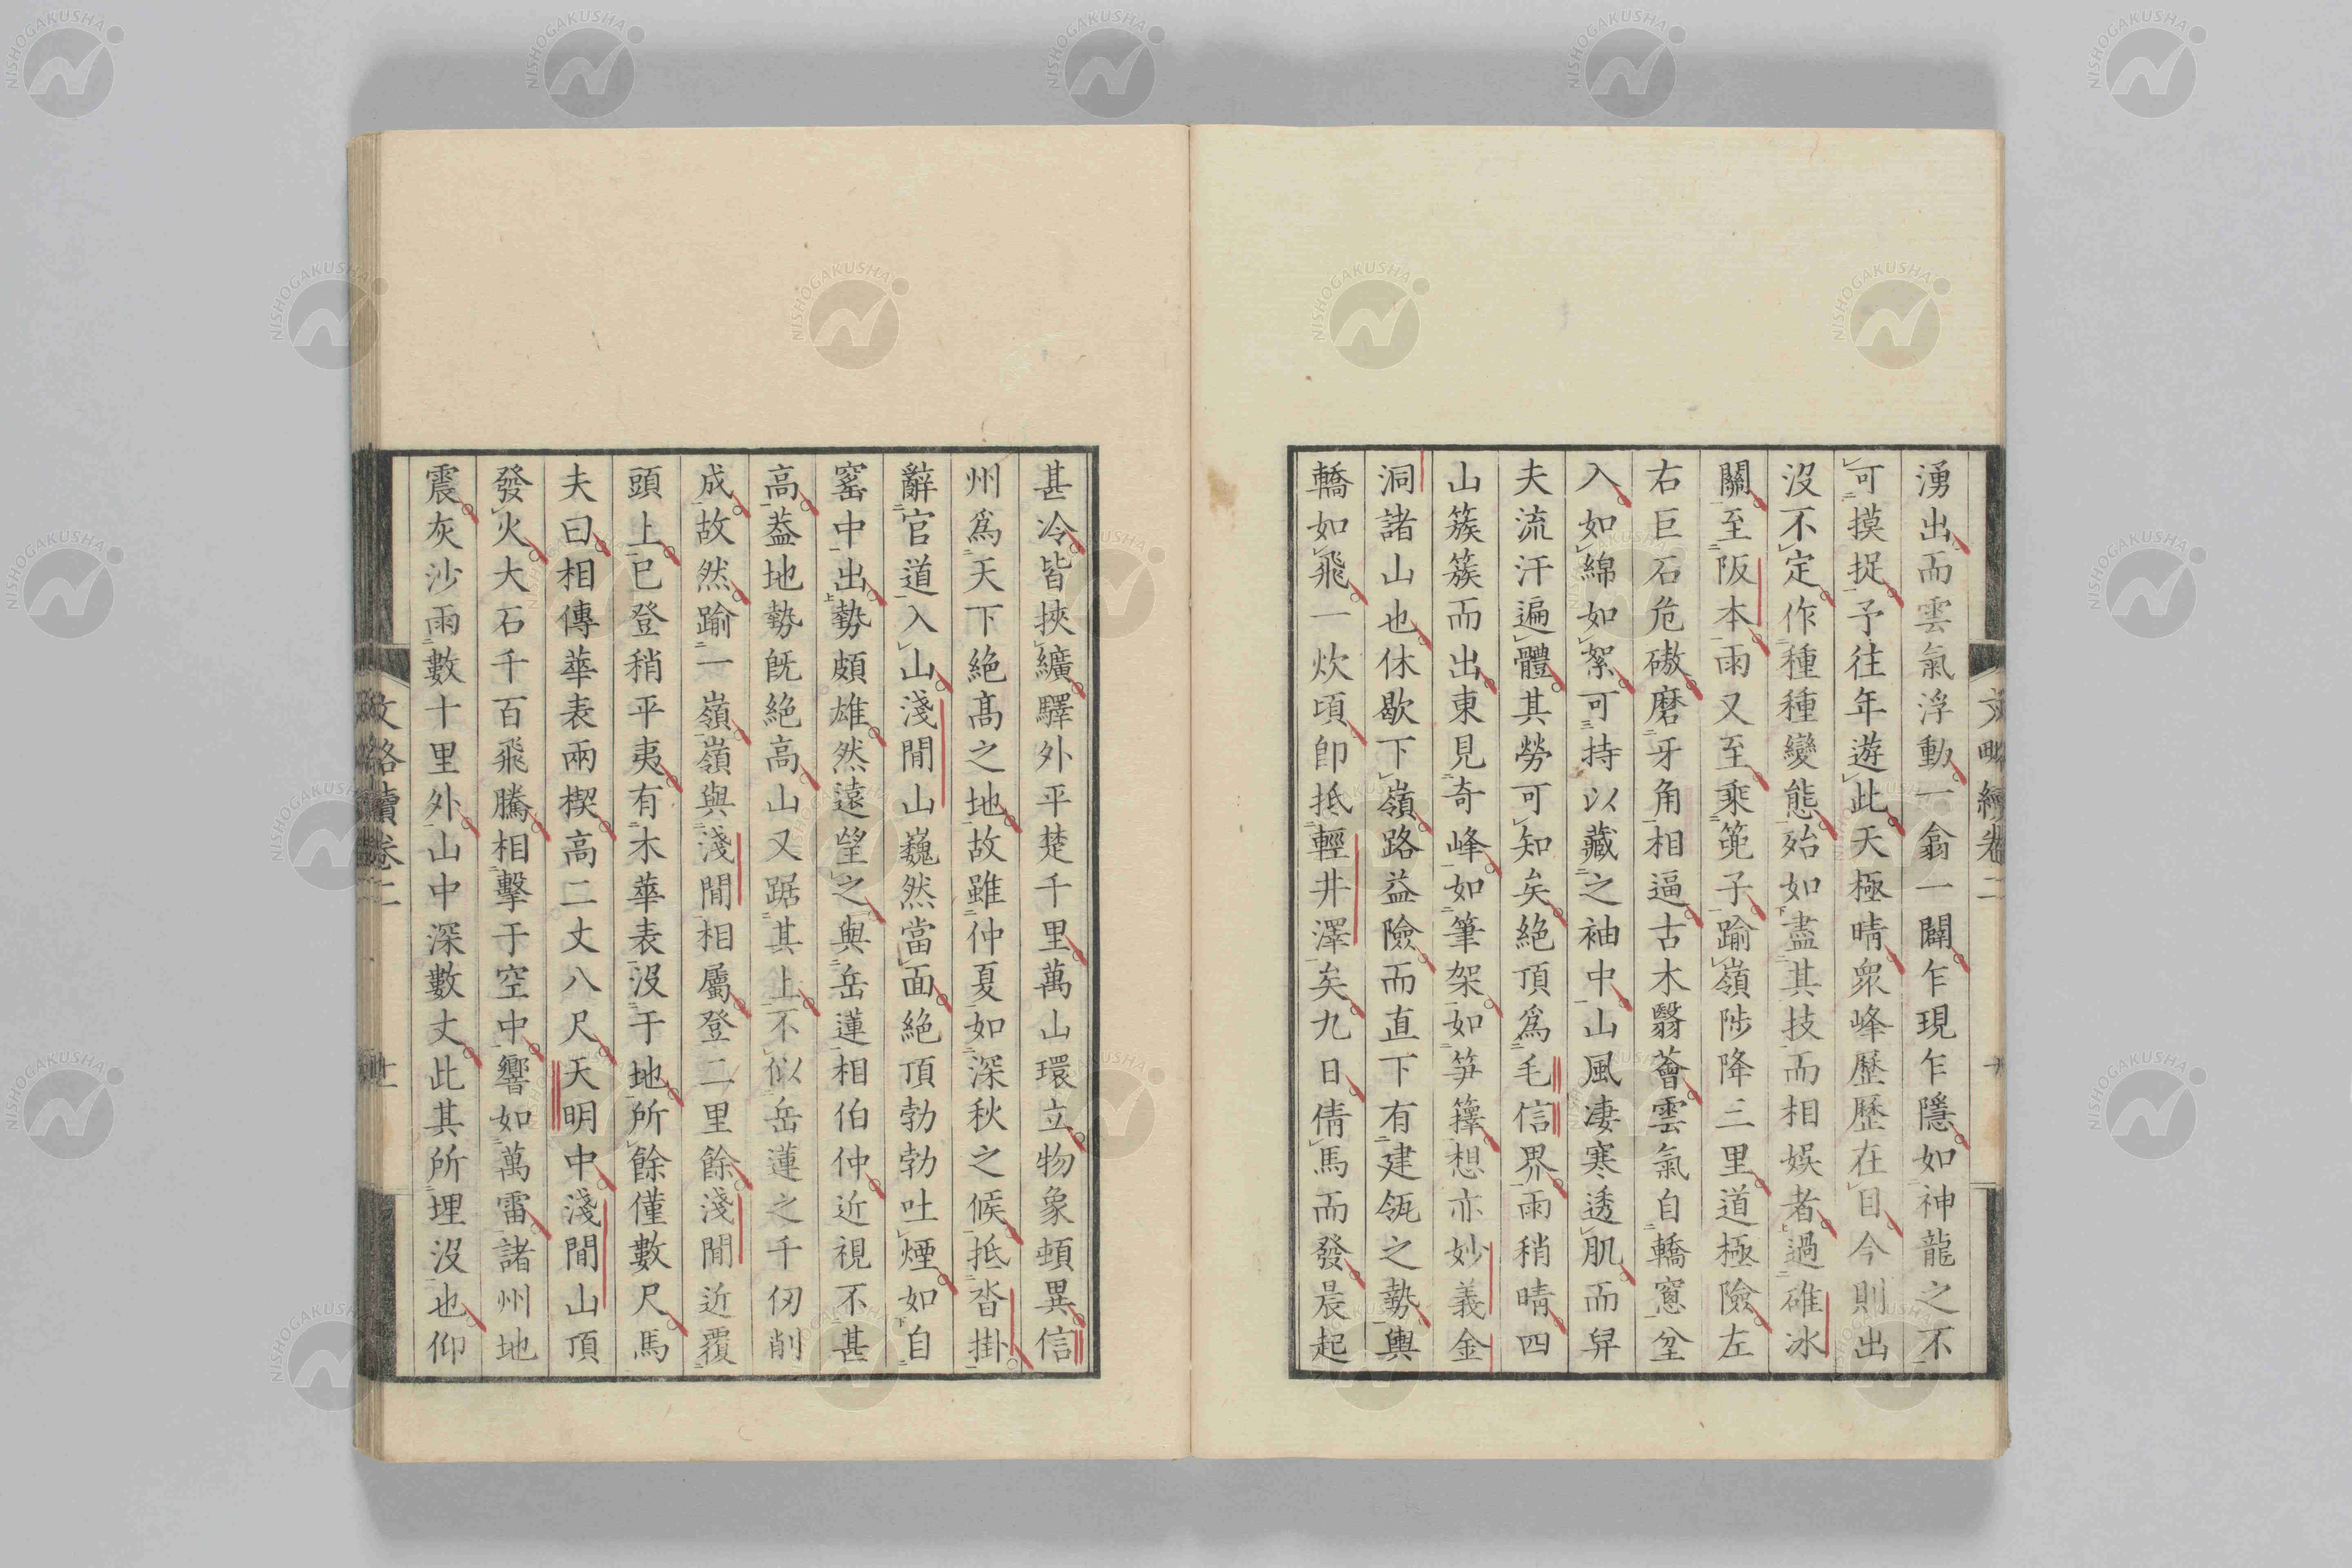 湧出而雲氣浮動一翕一闢乍現乍隱如神龍之不
可摸捉予往年遊此天極晴衆峰歷歷在目今則出
沒不定作種種變態殆如盡其技而相娛者過碓冰
關至阪本雨又至乘篼子踰嶺陟降三里道極險左
右巨石危磝磨牙角相逼古木翳薈雲氣自轎窻坌
入如綿如絮可持以藏之袖中山風凄寒透肌而舁
夫流汗遍體其勞可知矣絕頂爲毛信界雨稍晴四
山簇簇而出東見奇峰如筆架如笋籜想亦妙義金
洞諸山也休歇下嶺路益險而直下有建瓴之勢輿
轎如飛一炊頃卽抵輕井澤矣九日倩馬而發晨起
文略續卷二
甚冷皆挾纊驛外平楚千里萬山環立物象頓異信
州爲天下絕髙之地故雖仲夏如深秋之候抵沓掛
辭官道入山淺間山巍然當面絕頂勃勃吐煙如自
窰中出勢頗雄然遠望之與岳蓮相伯仲近視不甚
高葢地勢旣絕高山又踞其上不似岳蓮之千仞削
成故然踰一嶺嶺與淺間相屬登二里餘淺間近覆
頭上已登稍平夷有木華表沒于地所餘僅數尺馬
夫曰相傳華表兩楔高二丈八尺天明中淺間山頂
發火大石千百飛騰相擊于空中響如萬雷諸州地
震灰沙雨數十里外山中深數丈此其所埋沒也仰
文略續卷二
NISHOGAKUSHA